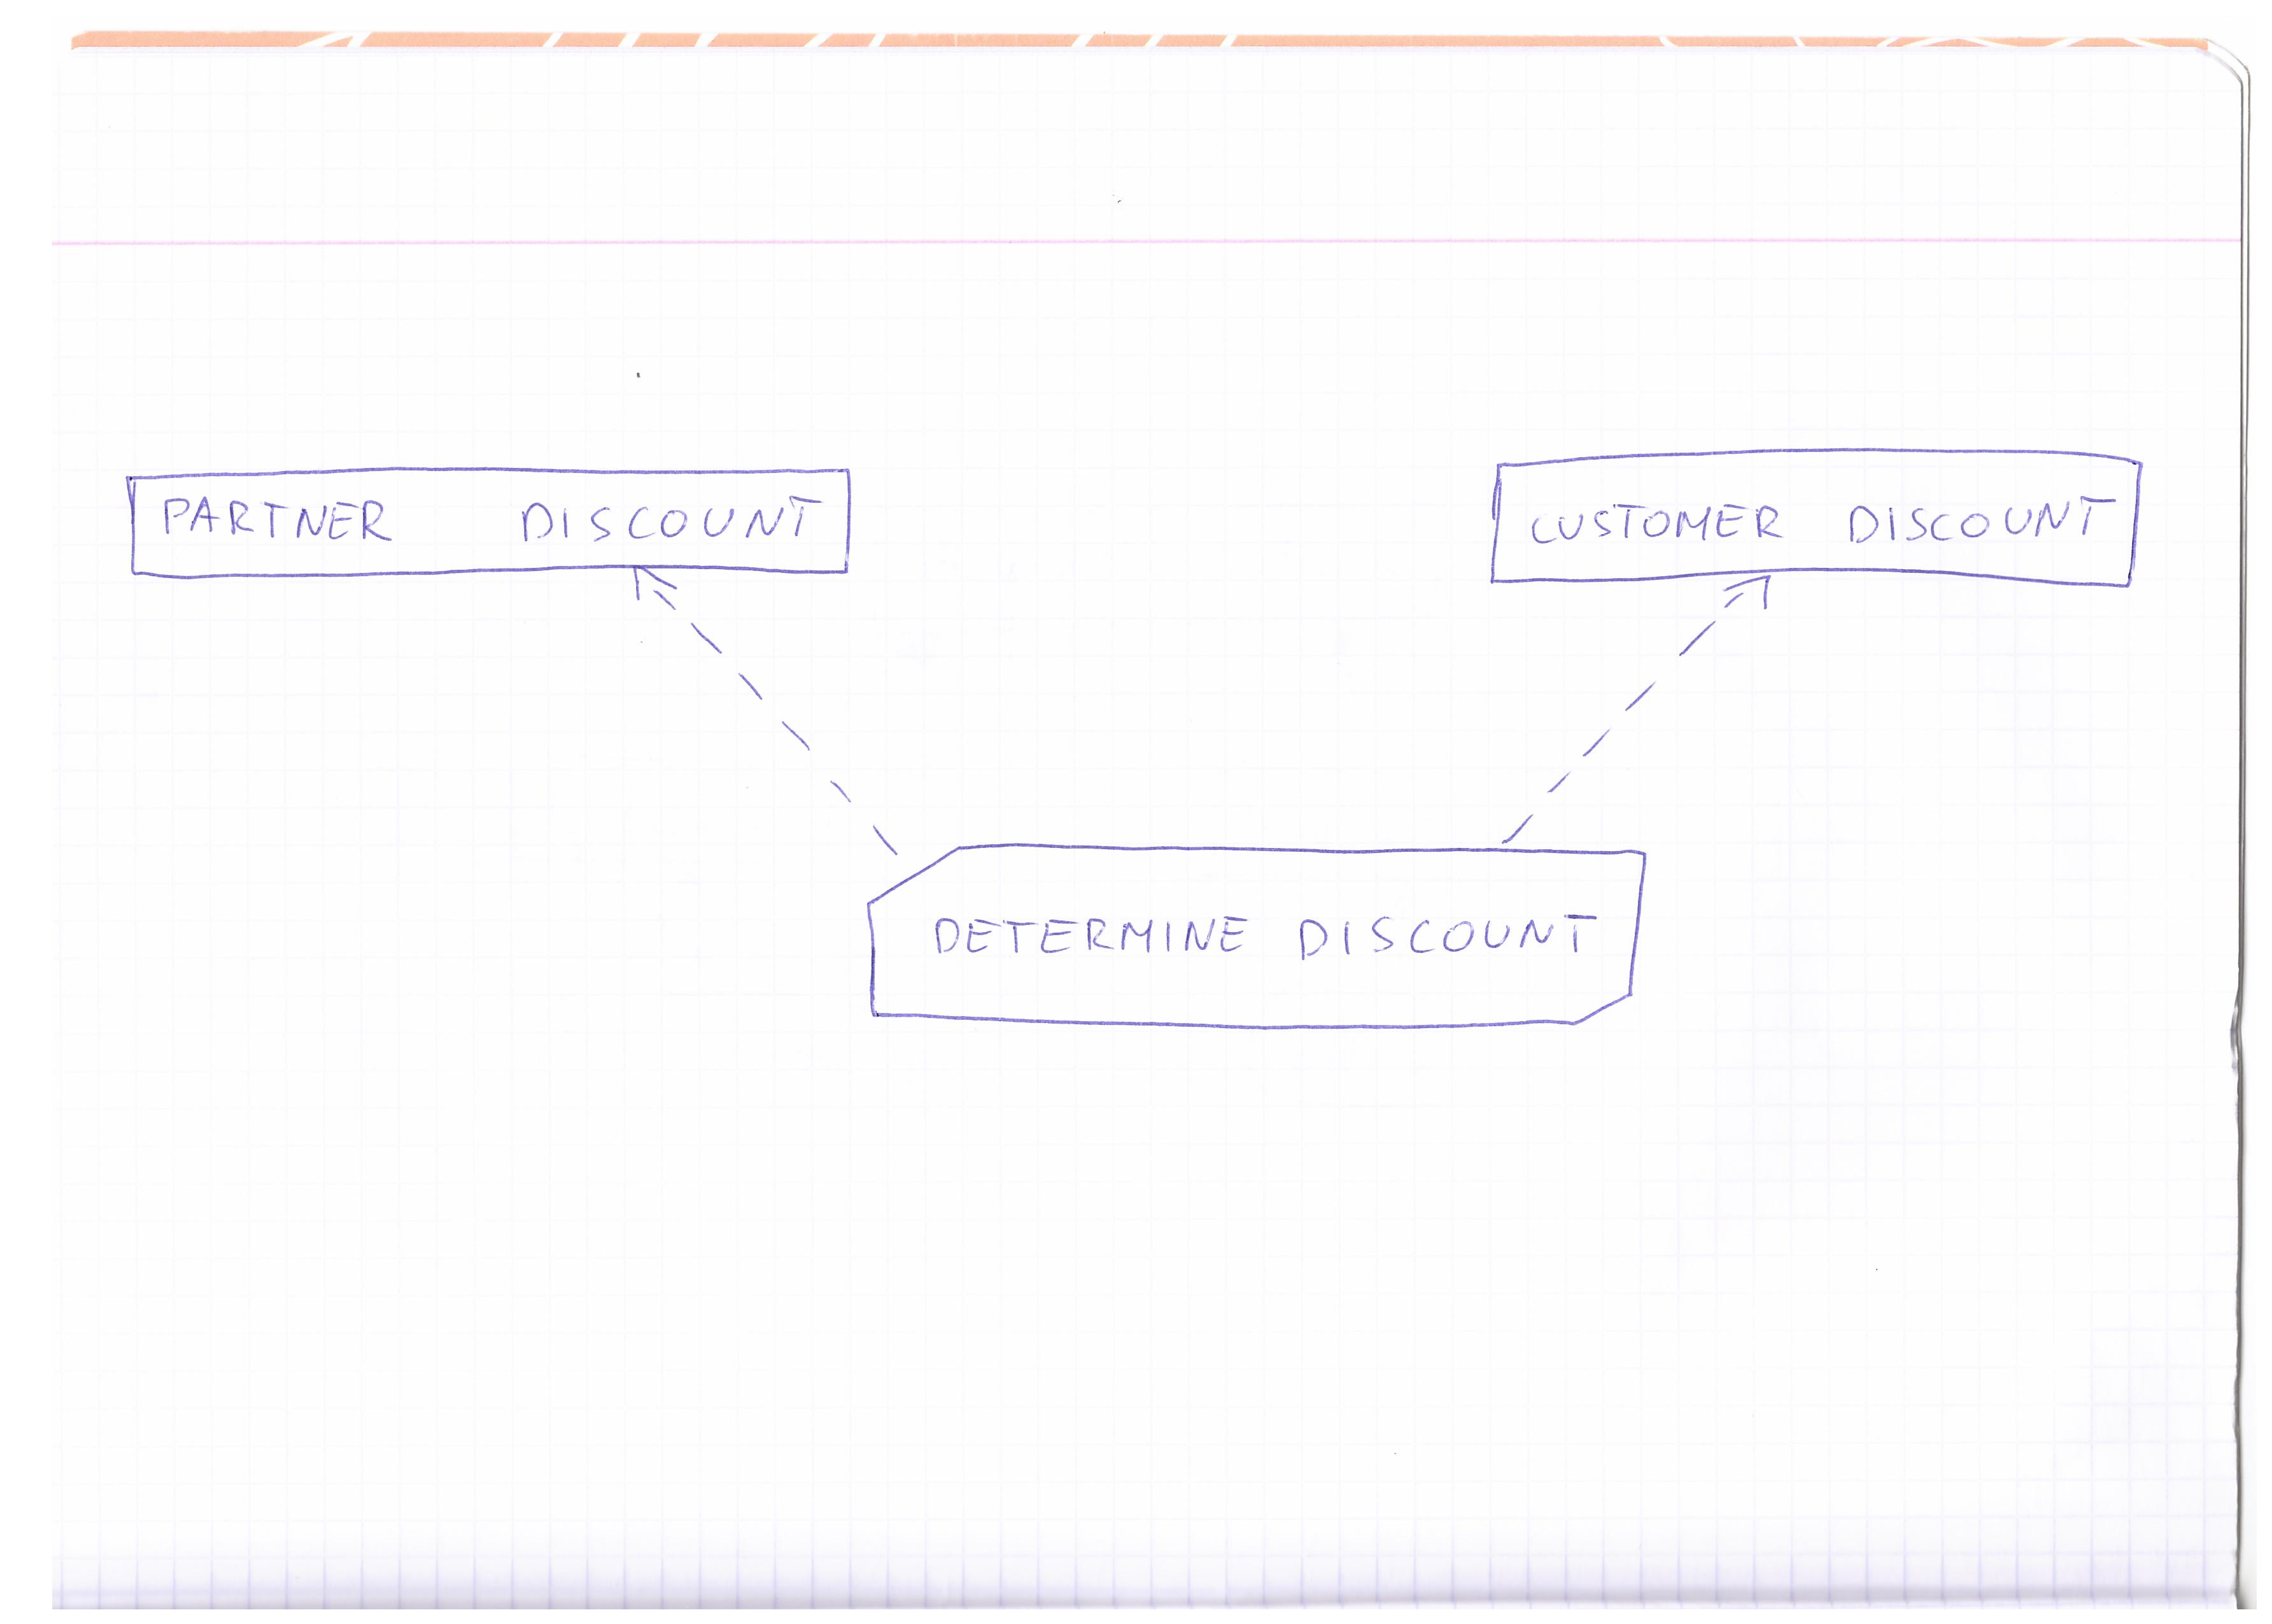 PARTNER DISCOUNT
CUSTOMER DISCOUNT
DETERMINE DISCOUNT